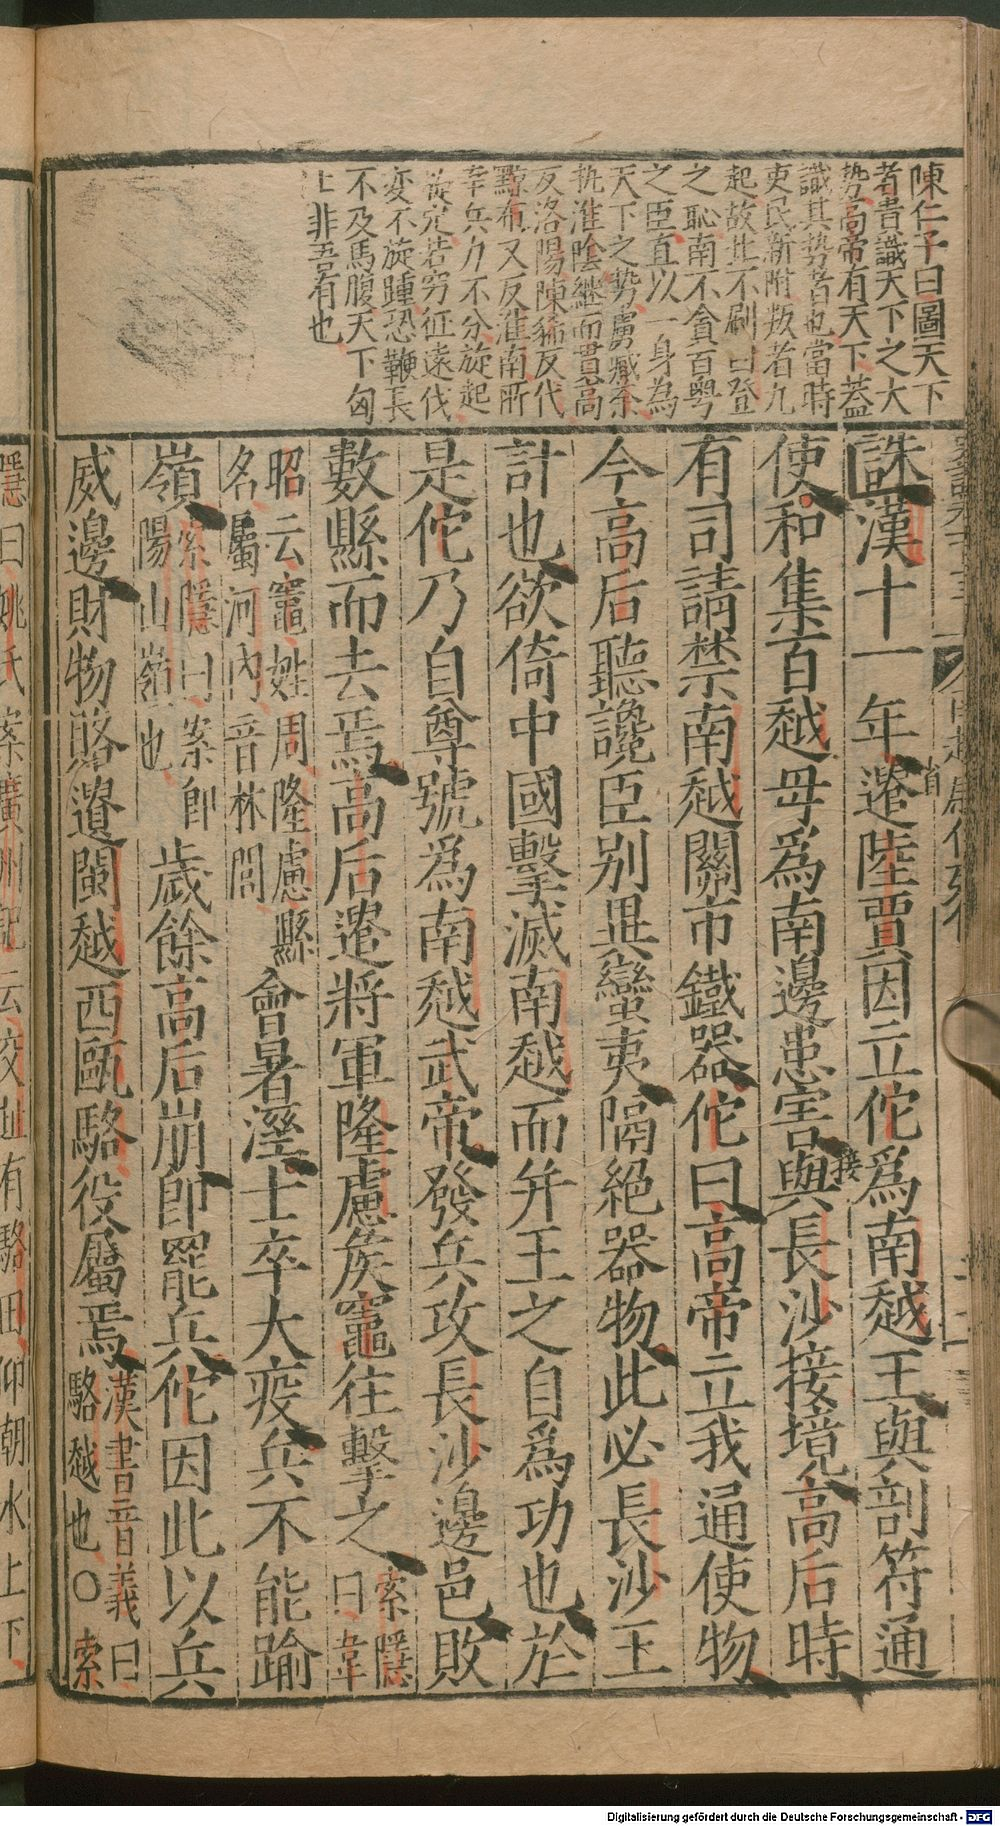 陳仁子曰圖天下
者貴識天下之大
勢高帝有天下蓋
識其勢者也當時
吏民新附叛者九
起故世不刷曰登
之恥南不貪百粤
之臣直以一身為
天下之勢虜臧荼
執淮陰繼而貫高
反洛陽陳豨反代
黥布又反淮南所
幸兵力不分旋起
旋定若窮征遠伐
变不旋踵恐鞭長
不及馬腹天下匈
上非吾有也
誅漢十一年遣陸賈因立佗爲南越王與剖符通
使和集百越毋爲南邊患害與長沙接境高后時
有司請禁南越關市鐵器佗曰高帝立我通使物
今高后聽讒臣别異蠻夷隔絕器物此必長沙王
計也欲倚中國擊滅南越而并王之自爲功也於
是佗乃自尊號爲南越武帝發兵攻長沙邊邑敗
數縣而去焉高后遣將軍隆慮矦竈往擊之索隱
曰韋
昭云竈姓周隆慮縣
名屬河內音林閭會暑溼士卒大疫兵不能踰
嶺索隱曰案即
陽山嶺也歲餘高后崩即罷兵佗因此以兵
威邊財物賂遺閩越西甌駱役屬焉漢書音義曰
駱越也○索
隱曰姚氏案廣州記云交趾有駱田仰朝水上下
接
Digitalisierung gefördert durch die Deutsche Forschungsgemeinschaft - DFG